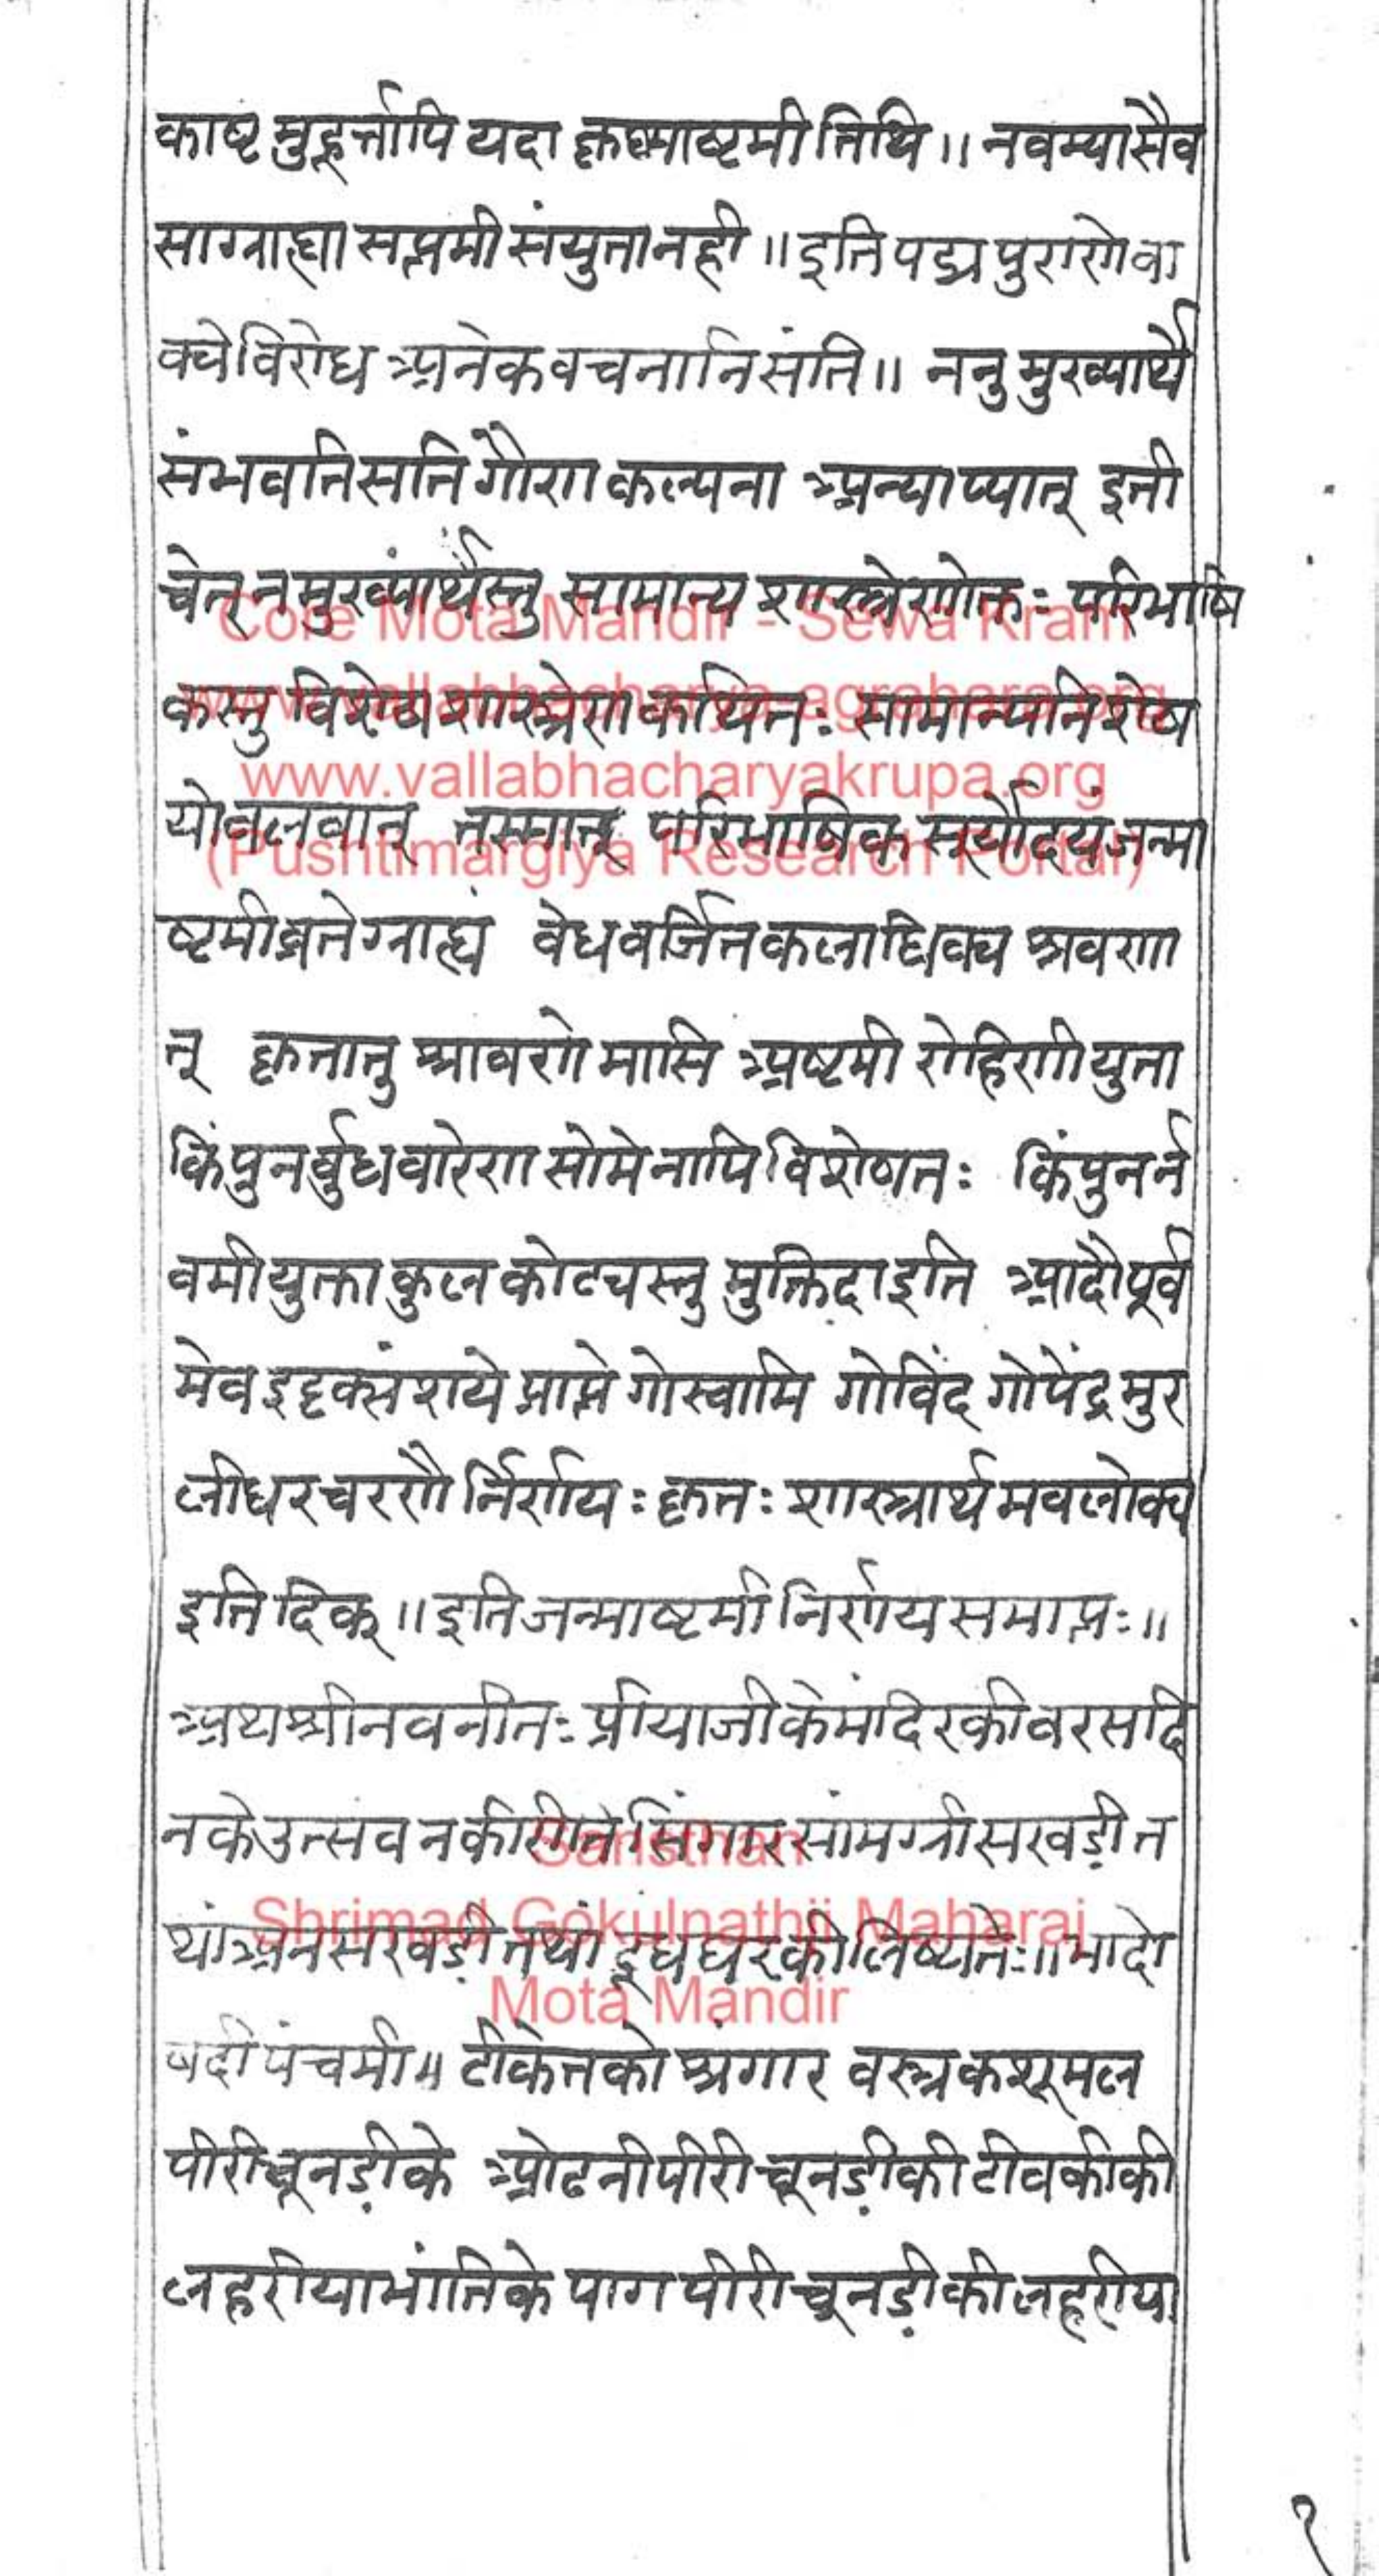 काष्ट मुहूर्त्तापि यदा कृष्णाष्टमी तिथि ॥ नवम्या सैव
सा ग्राह्या सप्तमी संयुता नही ॥ इति पद्म पुराणे वा
क्ये विरोध अनेक वचनानि संति ॥ ननु मुख्यार्थे
संभवति सति गौण कल्पना अन्याय्यात् इती
चेत् न मुख्यार्थस्तु सामान्य शास्त्रेणोक्तः परिभाषि
कस्तु विशेष शास्त्रेण कथितः सामान्यविशेष
योबलवान् तस्मात् परिभाषिक सूर्योदयं जन्मा
ष्टमीव्रते ग्राह्यं वेध वर्जित कलाधिक्य श्रवणा
त् कृतातु श्रावणे मासि अष्टमी रोहिणी युता
किंपुनर्बुधवारेण सोमेनापि विशेषतः किंपुनर्न
वमी युक्ता कुल कोट्यस्तु मुक्तिदा इति आदौ पूर्व
मेव इदृक्संशये प्राप्ते गोस्वामि गोविंद गोपेंद्र मुर
लीधर चरणैर्निर्णयः कृतः शास्त्रार्थमवलोक्य
इति दिक् ॥ इति जन्माष्टमी निर्णय समाप्तः ॥
अथ श्री नवनीतः प्रीयाजी के मंदिर की वरसदि
न के उत्सव न की रीत सिंगार सांमग्री सखडी त
थां अनसखडी तथां दूध घर की लिष्यतेः ॥ भादो
वदी पंचमी ॥ टीकेत को श्रंगार वस्त्र कशूमल
पीरी चूनडी के ओढनी पीरी चूनडी की टीवकी की
लहरीया भांति के पाग पीरी चूनडी की लहरीया
१
Core Mota Mandir - Sewa Kram
www.vallabhacharya-agrahara.org
www.vallabhacharyakrupa.org
(Pushtimargiya Research Portal)
Sansthan
Shrimad Gokulnathji Maharaj
Mota Mandir